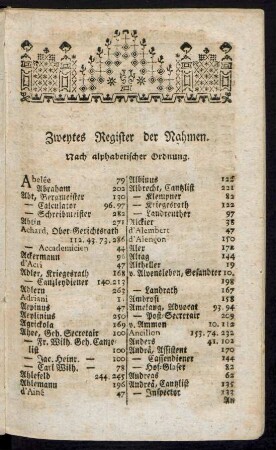 Zweytes Register der Nahmen.
Nach alphabetischer Ordnung.
Abelée 79
— Abraham 202
Abt, Bergmeister 130
— Calculator 96. 97
— Schreibmeister 282
Abtin 271
Achard, Ober-Gerichtsrath
112. 43. 73. 286
— Accademicien 44
Ackermann 96
d'Acri 47
Adler, Kriegesrath 168
— Canzleydiener 140. 213
Adlern 263
Adriani 1
Aepinus 47
Aeplinius 250
Agricola 169
Ahoe, Geh. Secretair 100
— Fr. Wilh. Geh. Canze-
list 100
— Jac. Heinr. — 100
— Carl Wilh. — 78
Ahlefeld 244. 245
Ahlemann 196
d'Ainé 47
Albinus 126
Albrecht, Canzlist 221
— Klempner 82
— Kriegesrath 122
— Landreuther 97
Alckier 38
d'Alembert 47
d'Alençon 170
Aler 178
Altag 144
Altheller 19
v. Alvensleben, Gesandter 10.
198
— Landrath 167
Ambrosi 158
Amelang, Advocat 93. 94
— Post-Secretair 209
v. Ammon 10. 112
Ancillon 153. 74. 232
Anders 41. 102
Andreä, Assistent 170
— Cassendiener 144
— Hof-Glaser 82
Andreas 62
Andreä, Canzlist 135
— Inspector 133
An